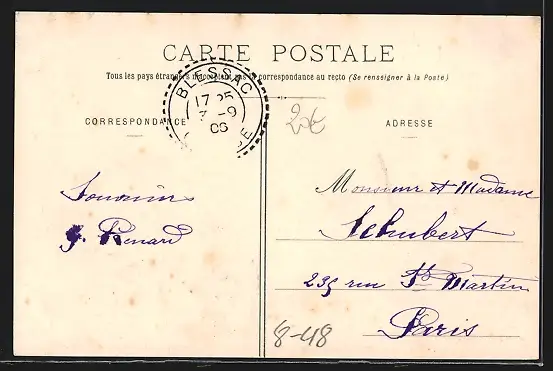 CARTE POSTALE
Tous les pays étrangers n'acceptent pas la correspondance au recto (Se renseigner à la Poste)
BLESSAC
17 25
7 -9
06
20€
CORRESPONDANCE
ADRESSE
Souvenirs
G. Renard
Monsieur et Madame
Schubert
235 rue St Martin
Paris
8-48